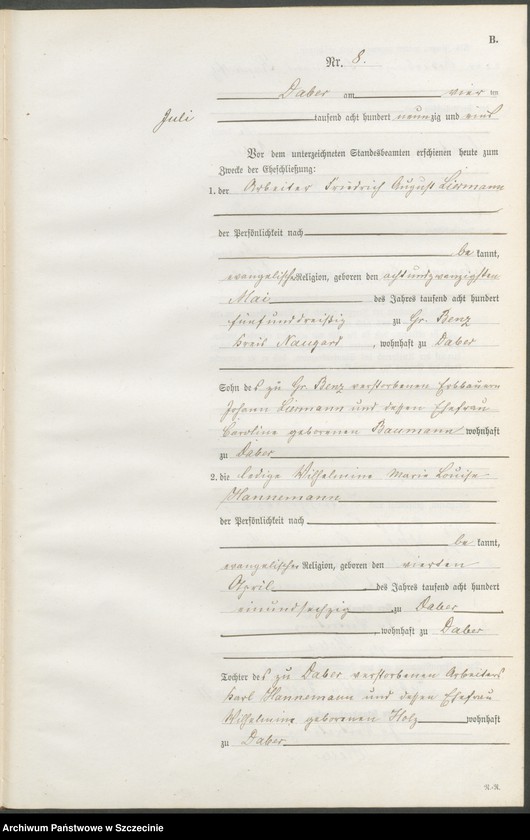 B.
Nr. 8.
Daber am vier ten
Juli tausend acht hundert neunzig und eins
Vor dem unterzeichneten Standesbeamten erschienen heute zum
Zwecke der Eheschließung:
1. der Arbeiter Friedrich August Liermann
der Persönlichkeit nach
be kannt,
evangelischer Religion, geboren den achtundzwanzigsten
Mai des Jahres tausend acht hundert
fünfunddreißig zu Gr. Benz
Kreis Naugard, wohnhaft zu Daber
Sohn des zu Gr. Benz verstorbenen Erbbauern
Johann Liermann und dessen Ehefrau
Caroline geborenen Baumann wohnhaft
zu Daber
2. die ledige Wilhelmine Marie Louise
Hannemann
der Persönlichkeit nach
be kannt,
evangelischer Religion, geboren den vierten
April des Jahres tausend acht hundert
einundsechzig zu Daber,
, wohnhaft zu Daber
Tochter des zu Daber verstorbenen Arbeiters
Karl Hannemann und dessen Ehefrau
Wilhelmine geborenen Holz wohnhaft
zu Daber
R.-R.
Archiwum Państwowe w Szczecinie